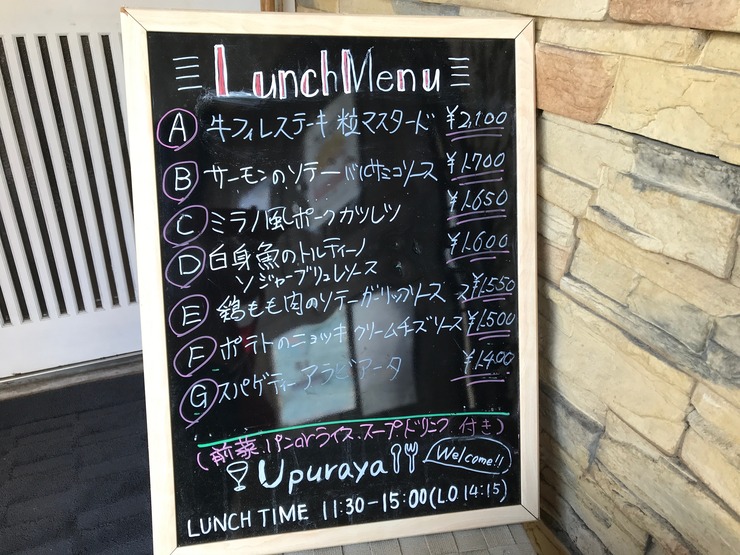 Lunch Menu
A 牛フィレステーキ 粒マスタード ¥2,100
B サーモンのソテー バルサミコソース ¥1.700
C ミラノ風ポークカツレツ ¥1.650
D 白身魚のトルティーノ ¥1.600
ソジャーブリュレソース
E 鶏もも肉のソテー ガーリックソース ¥1.550
F ポテトのニョッキ クリームチーズソース ¥1.500
G スパゲティー アラビアータ ¥1.400
(前菜、パンorライス、スープ、ドリンク 付き)
Upuraya Welcome!!
LUNCH TIME 11:30-15:00(L.O.14:15)